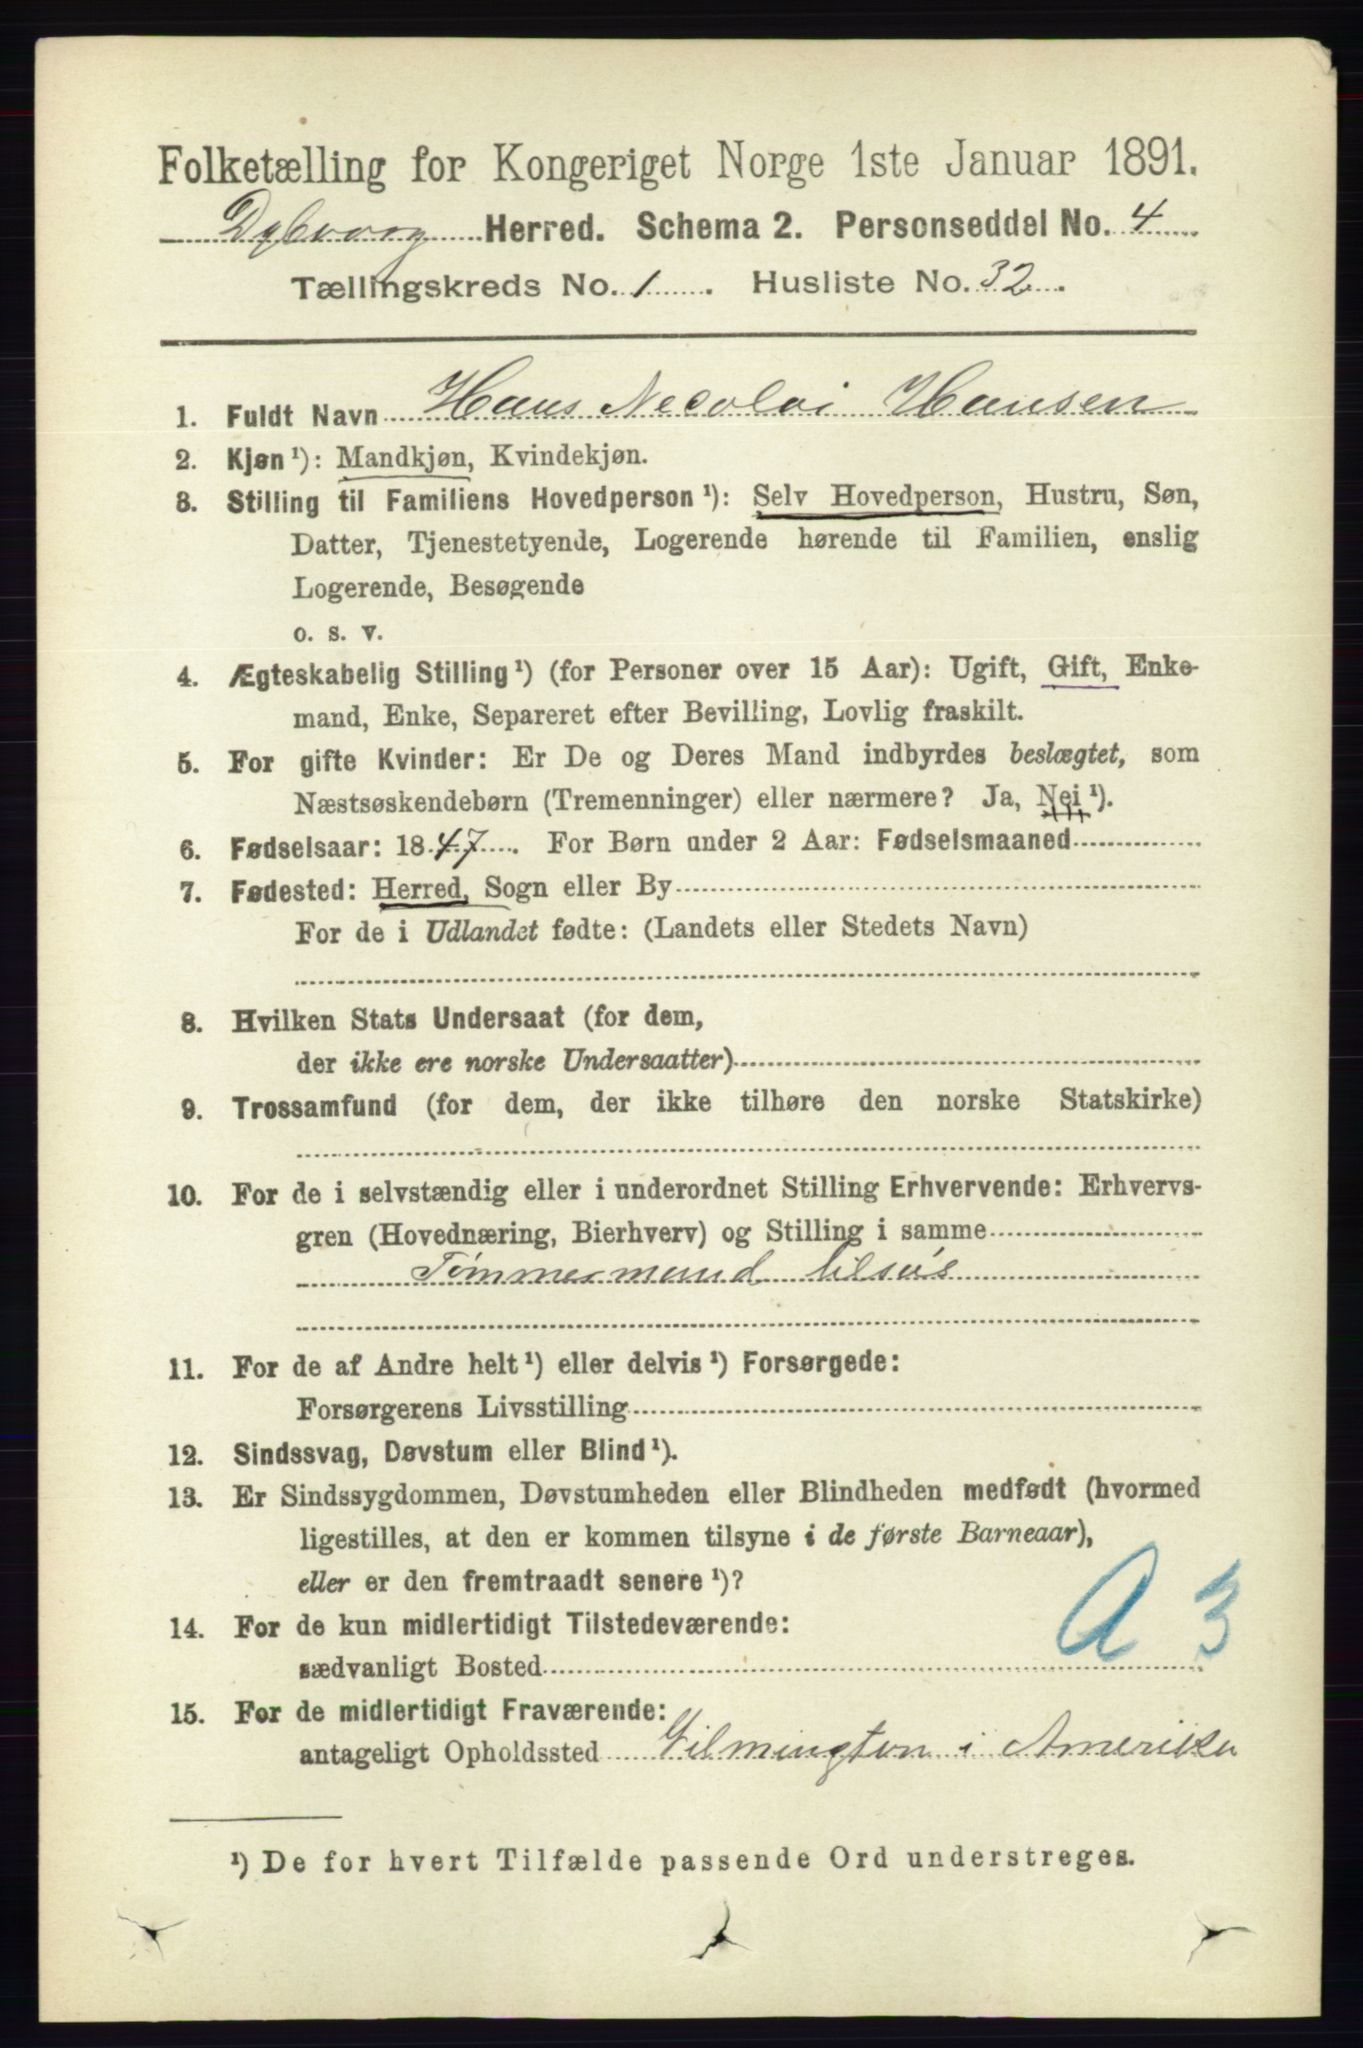 Folketælling for Kongeriget Norge 1ste Januar 1891.
Dybvaag Herred. Schema 2. Personseddel No. 4
Tællingskreds No. 1. Husliste No. 32.
1. Fuldt Navn Hans Necolai Hansen
2. Kjøn¹): Mandkjøn, Kvindekjøn.
3. Stilling til Familiens Hovedperson¹): Selv Hovedperson, Hustru, Søn,
Datter, Tjenestetyende, Logerende hørende til Familien, enslig
Logerende, Besøgende
o. s. v.
4. Ægteskabelig Stilling¹) (for Personer over 15 Aar): Ugift, Gift, Enke-
mand, Enke, Separeret efter Bevilling, Lovlig fraskilt.
5. For gifte Kvinder: Er De og Deres Mand indbyrdes beslægtet, som
Næstsøskendebørn (Tremenninger) eller nærmere? Ja, Nei¹).
6. Fødselsaar: 1847. For Børn under 2 Aar: Fødselsmaaned
7. Fødested: Herred, Sogn eller By
For de i Udlandet fødte: (Landets eller Stedets Navn)
8. Hvilken Stats Undersaat (for dem,
der ikke ere norske Undersaatter)
9. Trossamfund (for dem, der ikke tilhøre den norske Statskirke)
10. For de i selvstændig eller i underordnet Stilling Erhvervende: Erhvervs-
gren (Hovednæring, Bierhverv) og Stilling i samme
Tømmermand tilsøs
11. For de af Andre helt¹) eller delvis¹) Forsørgede:
Forsørgerens Livsstilling
12. Sindssvag, Døvstum eller Blind¹).
13. Er Sindssygdommen, Døvstumheden eller Blindheden medfødt (hvormed
ligestilles, at den er kommen tilsyne i de første Barneaar),
eller er den fremtraadt senere¹)?
A 3
14. For de kun midlertidigt Tilstedeværende:
sædvanligt Bosted
15. For de midlertidigt Fraværende:
antageligt Opholdssted Vilmington i Amerika
¹) De for hvert Tilfælde passende Ord understreges.